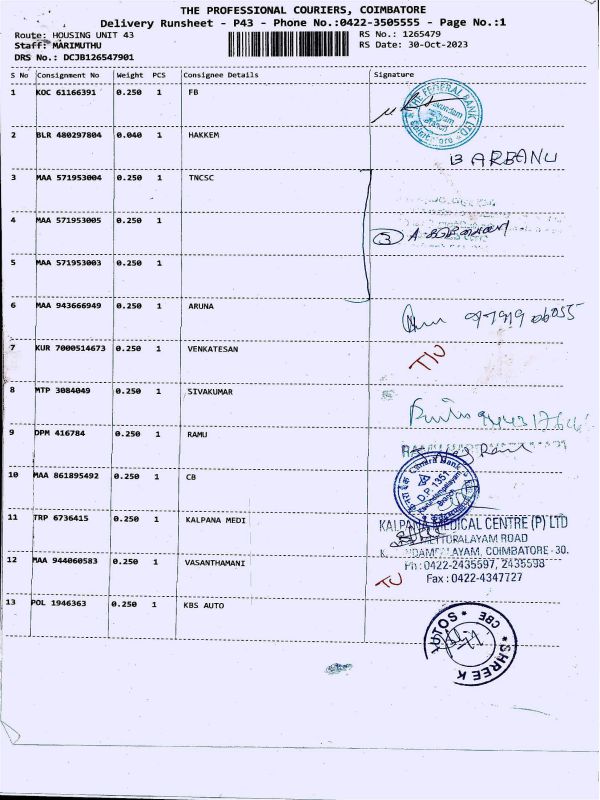 THE PROFESSIONAL COURIERS, COIMBATORE
Delivery Runsheet - P43 - Phone No.:0422-3505555 - Page No.:1
Route: HOUSING UNIT 43 RS No.: 1265479
Staff: MARIMUTHU RS Date: 30-Oct-2023
DRS No.: DCJB126547901
S No Consignment No Weight PCS Consignee Details Signature
1 KOC 61166391 0.250 1 FB
THE FEDERAL BANK LTD
2 BLR 480297804 0.040 1 HAKKEM
BARBANU
3 MAA 571953004 0.250 1 TNCSC
4 MAA 571953005 0.250 1
3 A
5 MAA 571953003 0.250 1
6 MAA 943666949 0.250 1 ARUNA
7 KUR 7000514673 0.250 1 VENKATESAN
8 MTP 3084049 0.250 1 SIVAKUMAR
9 DPM 416784 0.250 1 RAMU
10 MAA 861895492 0.250 1 CB
Canara Bank
D.P. 1351
11 TRP 6736415 0.250 1 KALPANA MEDI
KALPANA MEDICAL CENTRE (P) LTD
METTORALAYAM ROAD
COIMBATORE - 30.
Ph : 0422-2435597, 2435598
Fax : 0422-4347727
12 MAA 944060583 0.250 1 VASANTHAMANI
13 POL 1946363 0.250 1 KBS AUTO
SHREE K LOTOS * CBE *